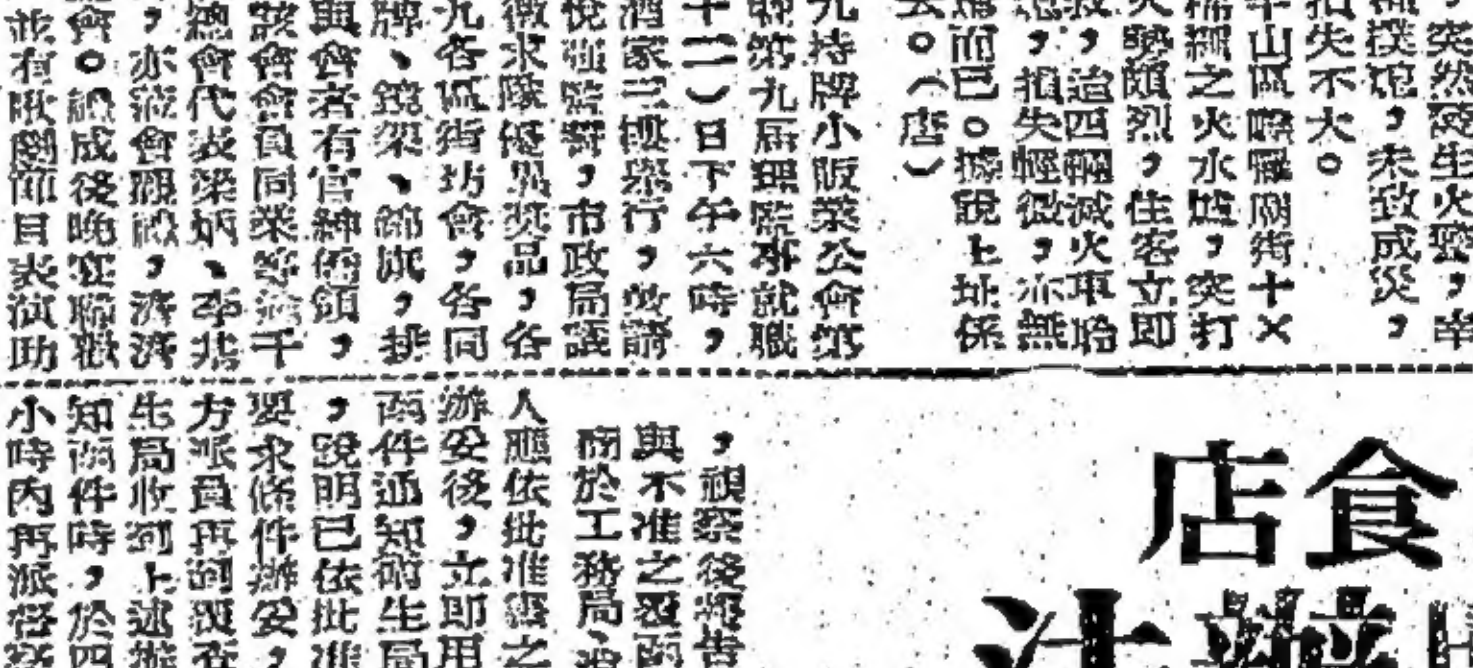 ，突然發生火警，幸
撲熄，未致成災，
損失不大。
半山區嚤囉廟街十×
之火水爐，突打
火勢頗烈，住客立即
救，迨四輛滅火車聆
熄，損失輕微，亦無
而已。據說上址係
去。（店）
九持牌小販業公會第
聯第九屆理監事就職
十二）日下午六時，
酒家三樓舉行，敦請
悅強監誓，市政局議
徵求隊優異獎品，各
九各區街坊會，各同
牌、鏡架、錦旗，排
與會者有官紳僑領，
該會會員同業等逾千
總會代表梁炳、李
，亦蒞會觀禮，濟濟
會。禮成後晚宴聯歡
並有歌劇節目表演助
食店
，視察後將告
與不准之覆函
商於工務局、消
人應依批准書之
辦妥後，立即用
函件通知衛生局
，說明已依批准
要求條件辦妥，
方派員再到覆查
生局收到上述辦
知函件時，於四
小時內再派